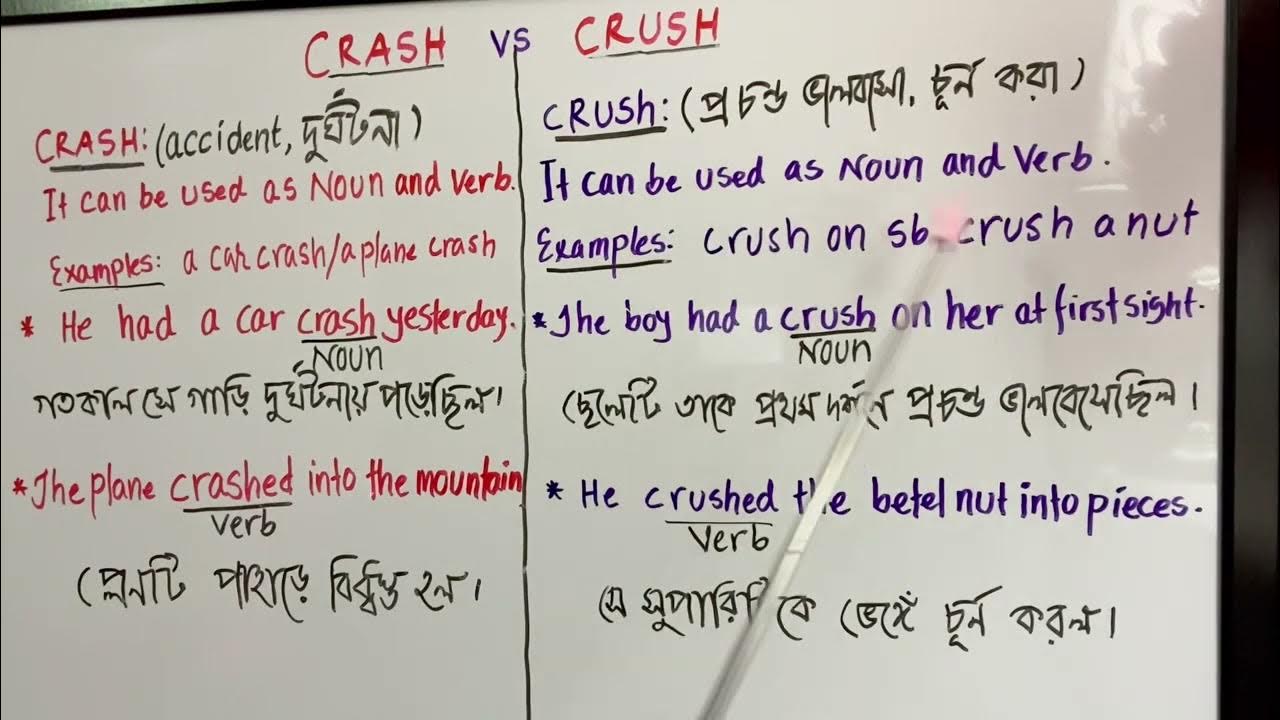 CRASH vs CRUSH
CRASH: (accident, দুর্ঘটনা)
It can be used as Noun and verb.
Examples: a car crash/a plane crash
* He had a car crash yesterday.
Noun
গতকাল সে গাড়ি দুর্ঘটনায় পড়েছিল।
* The plane crashed into the mountain
verb
প্লেনটি পাহাড়ে বিধ্বস্ত হল।
CRUSH: (প্রচন্ড ভালবাসা, চূর্ন করা)
It can be used as Noun and Verb.
Examples: crush on sb, crush a nut
* The boy had a crush on her at first sight.
Noun
ছেলেটি তাকে প্রথম দর্শনে প্রচন্ড ভালবেসেছিল।
* He crushed the betel nut into pieces.
Verb
সে সুপারিটিকে ভেঙ্গে চূর্ন করল।